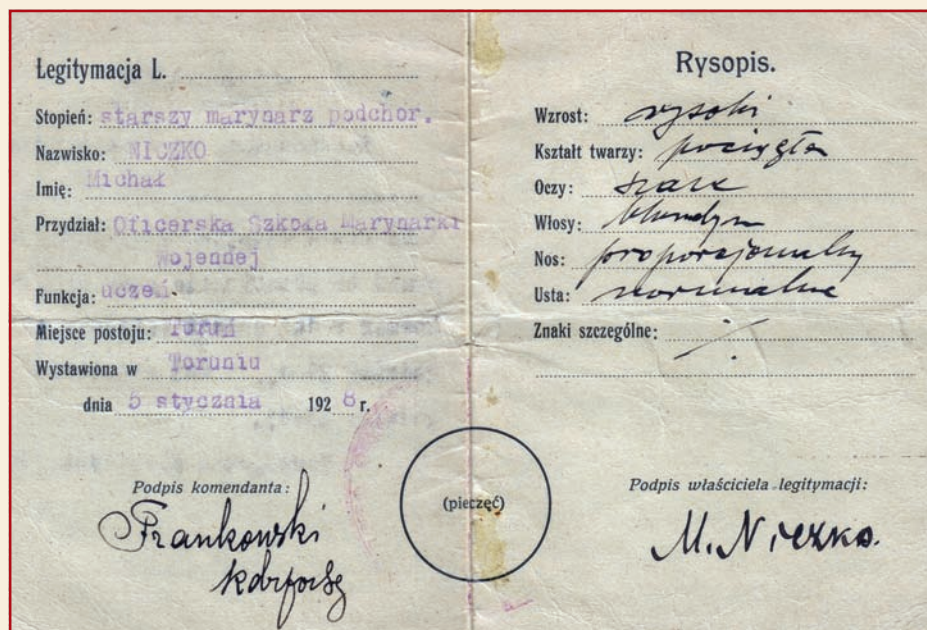 Legitymacja L.
Stopień: starszy marynarz podchor.
Nazwisko: NICZKO
Imię: Michał
Przydział: Oficerska Szkoła Marynarki
Wojennej
Funkcja: uczeń
Miejsce postoju: Toruń
Wystawiona w Toruniu
dnia 5 stycznia 1928 r.
Podpis komendanta:
Frankowski
(pieczęć)
Rysopis.
Wzrost: wysoki
Kształt twarzy: pociągła
Oczy: szare
Włosy: blondyn
Nos: proporcjonalny
Usta: normalne
Znaki szczególne: ./.
Podpis właściciela legitymacji:
M. Niczko.